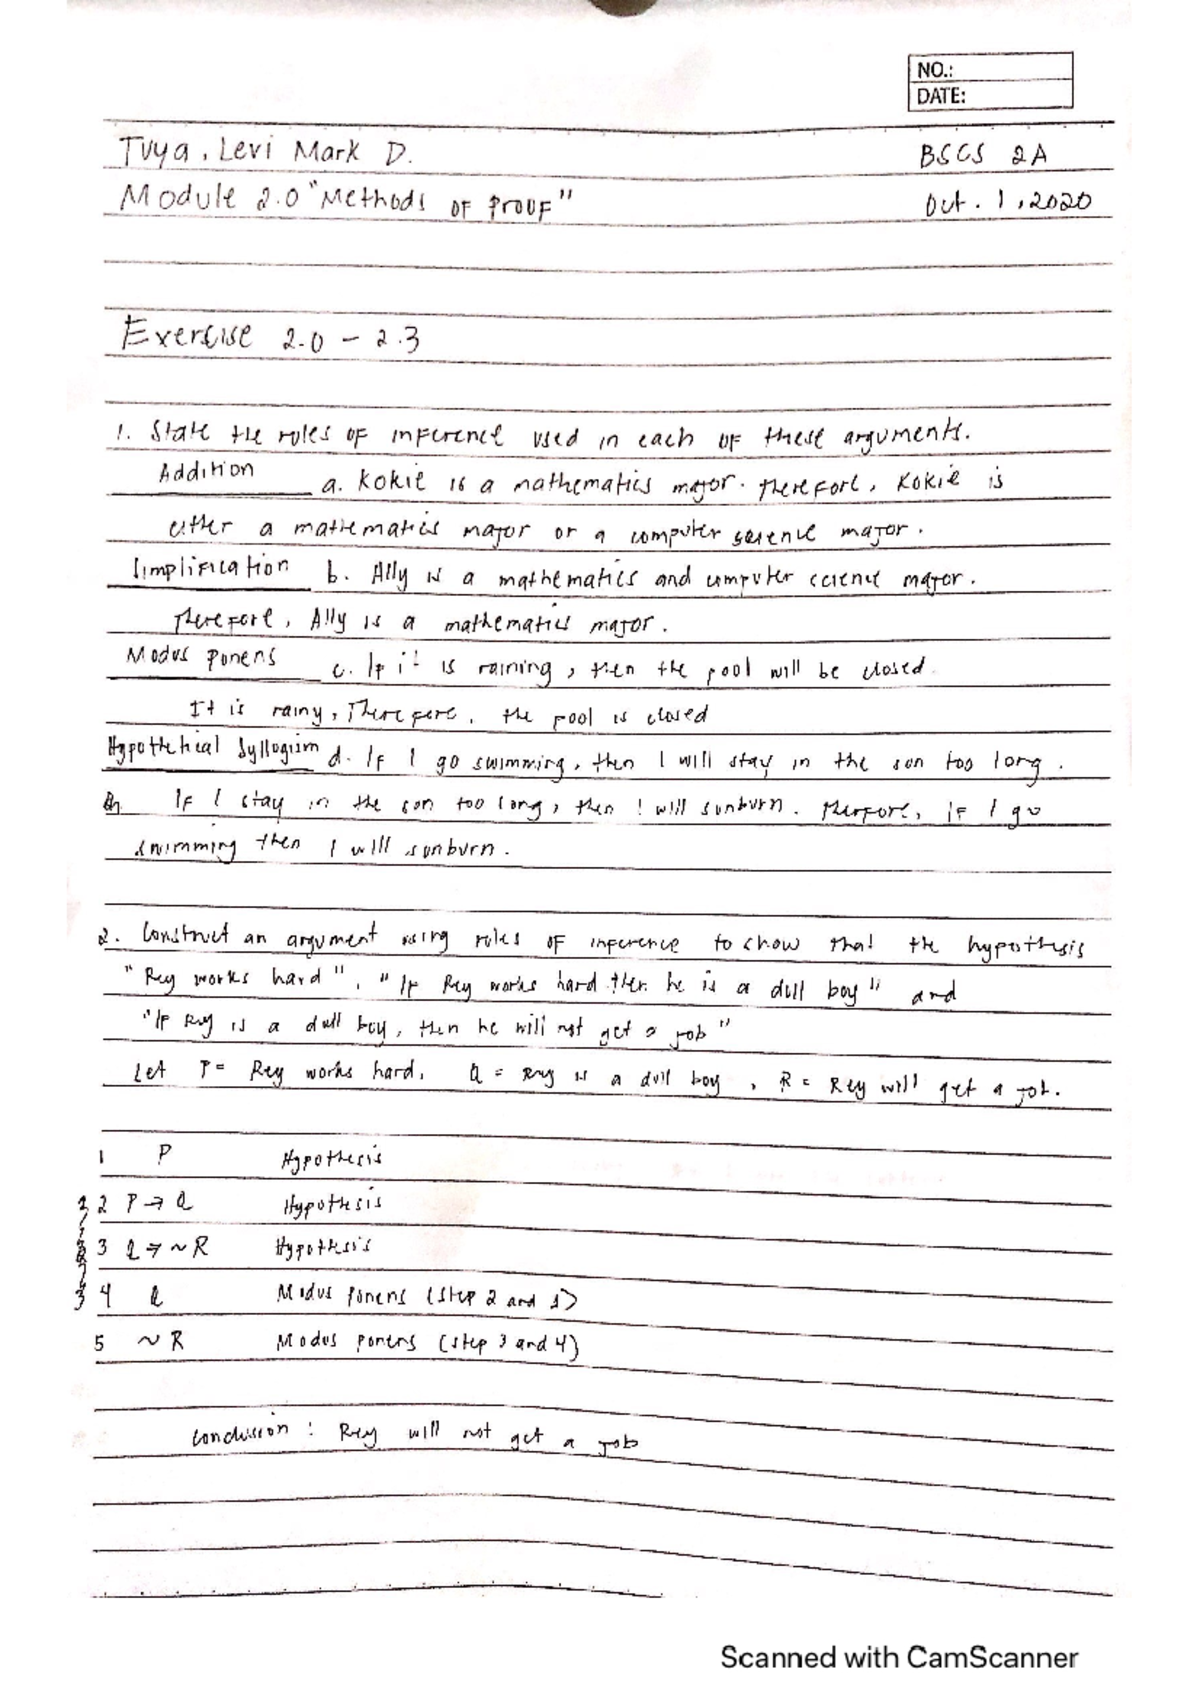 NO.:
DATE:
Tuya, Levi Mark D. BSCS 2A
Module 2.0 "Methods of Proof" Oct. 1, 2020
Exercise 2.0 - 2.3
1. State the rules of inference used in each of these arguments.
Addition a. Kokie is a mathematics major. Therefore, Kokie is
either a mathematics major or a computer science major.
Simplification b. Ally is a mathematics and computer science major.
Therefore, Ally is a mathematics major.
Modus ponens c. If it is raining, then the pool will be closed.
It is rainy, Therefore, the pool is closed
Hypothetical Syllogism d. If I go swimming, then I will stay in the sun too long.
If I stay in the sun too long, then I will sunburn. Therfore, if I go
swimming then I will sunburn.
2. Construct an argument using rules of inference to show that the hypothesis
"Rey works hard", "If Rey works hard then he is a dull boy" and
"If Rey is a dull boy, then he will not get a job"
Let P = Rey works hard, Q = Rey is a dull boy, R = Rey will get a job.
1 P Hypothesis
2 P → Q Hypothesis
3 Q → ~R Hypothesis
4 Q Modus ponens (step 2 and 1)
5 ~R Modus ponens (step 3 and 4)
Conclusion : Rey will not get a job
Scanned with CamScanner